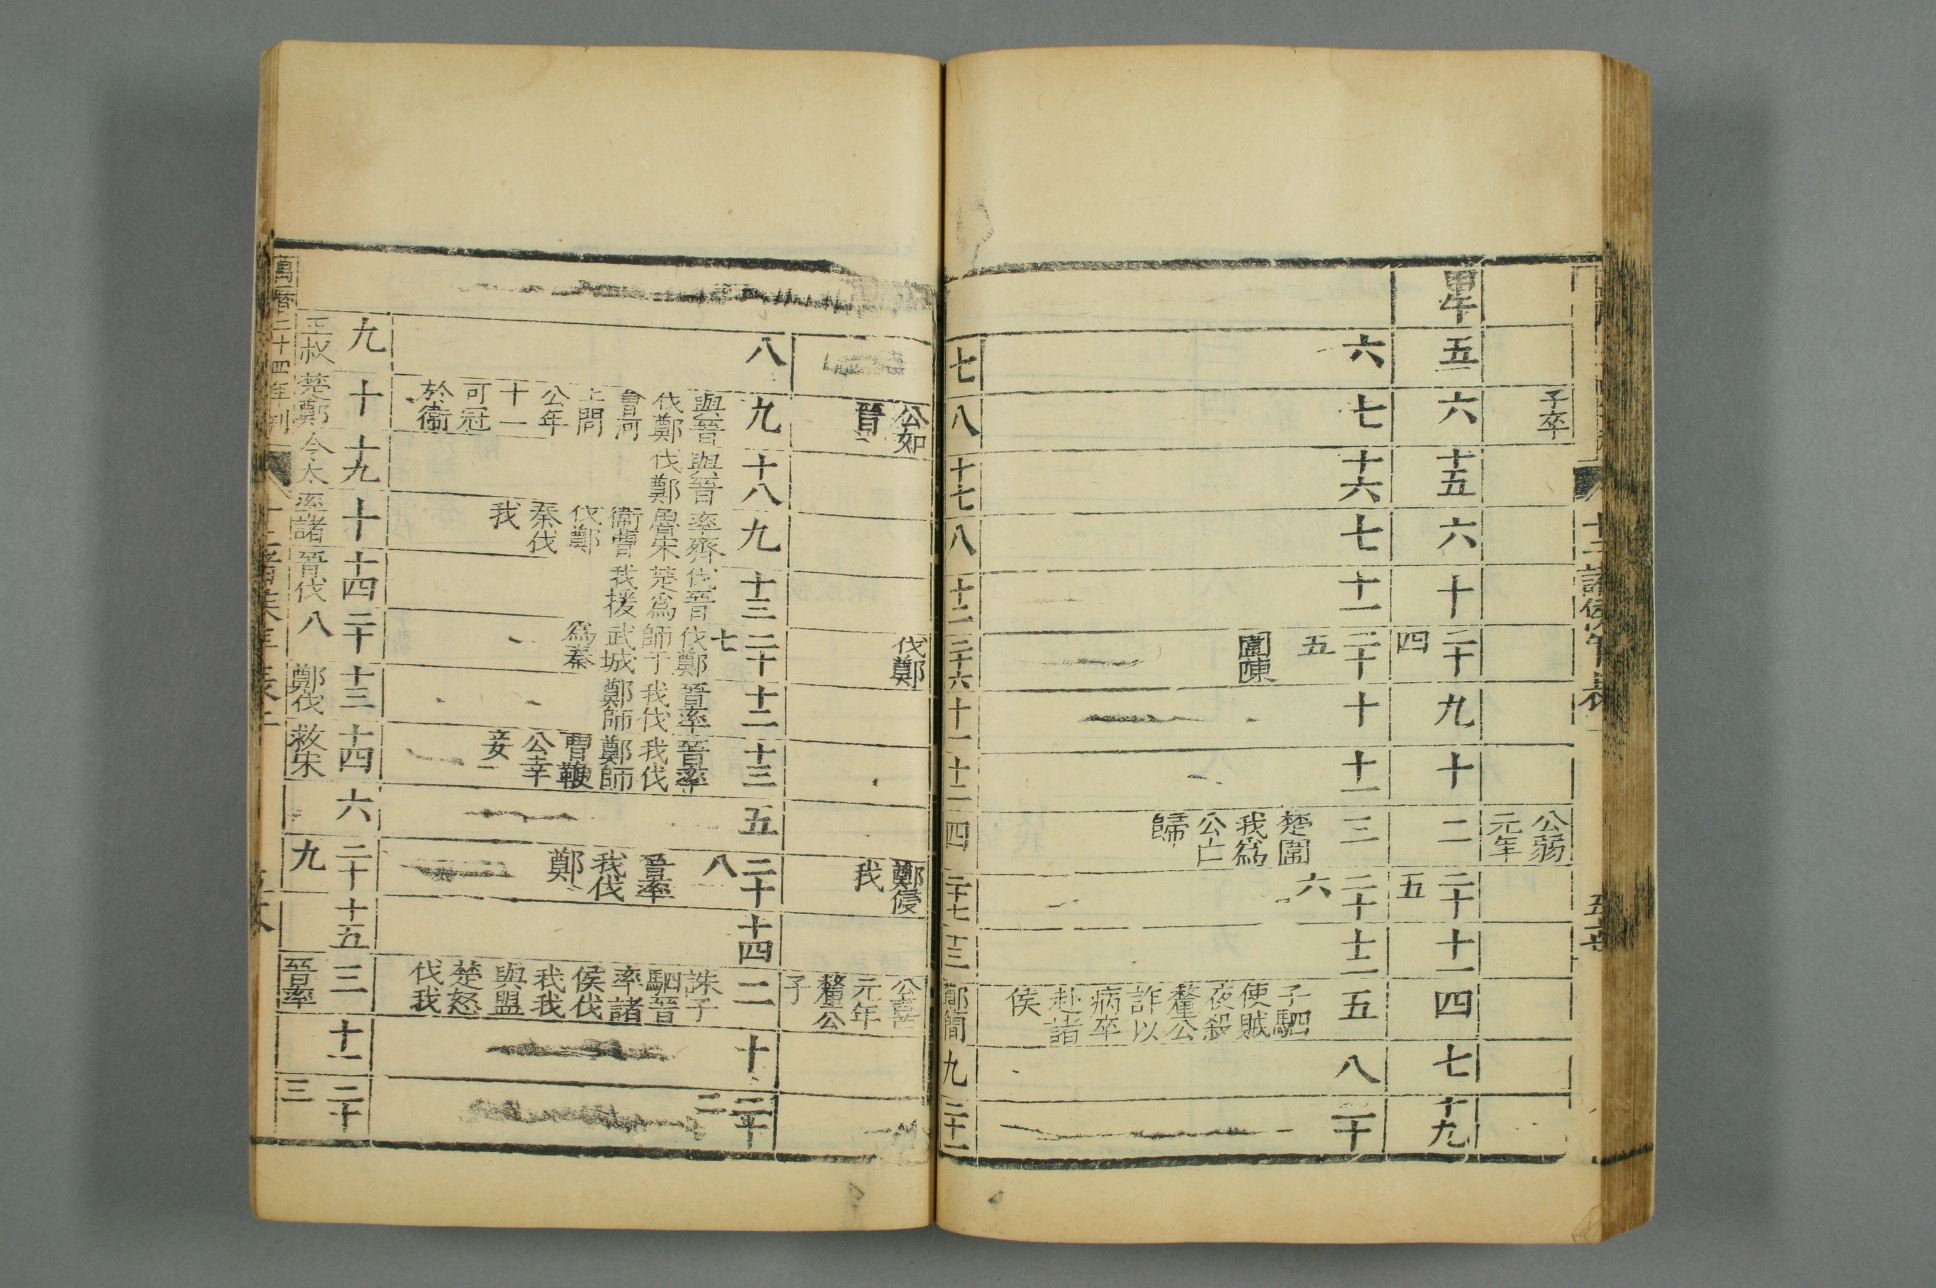 十二諸侯年表二
子卒
公弱
元年
甲午 五 六 十五 六 十 二十四 九 十 二 二十五 十一 四 七 十九
六 七 十六 七 十一 二十五 十 十一 三 二十六 十二 五 八 二十
圍陳
楚圍
我為
公亡
歸
子駟
使賊
夜殺
釐公
詐以
病卒
赴諸
侯
七 八 十七 八 十二 二十六 十一 十二 四 二十七 十三 鄭簡 九 二十一
公如
晉
伐鄭
鄭侵
我
公喜
元年
釐公
子
八 九 十八 九 十三 二十七 十二 十三 五 二十八 十四 二 十 二十二
與晉
伐鄭
會河
上問
公年
十一
可冠
於衞
與晉
伐鄭
率齊
魯宋
衞曹
伐鄭
秦伐
我
伐晉
楚為
我援
伐鄭
師于
武城
為秦
晉率
我伐
鄭師
晉率
我伐
鄭師
曹鞭
公幸
妾
晉率
我伐
鄭
誅子
駟晉
率諸
侯伐
我我
與盟
楚怒
伐我
九 十 十九 十 十四 二十八 十三 十四 六 二十九 十五 三 十一 二十三
王叔
楚鄭
今太
率諸
晉伐
鄭伐
救宋
晉率
萬曆二十四年刊